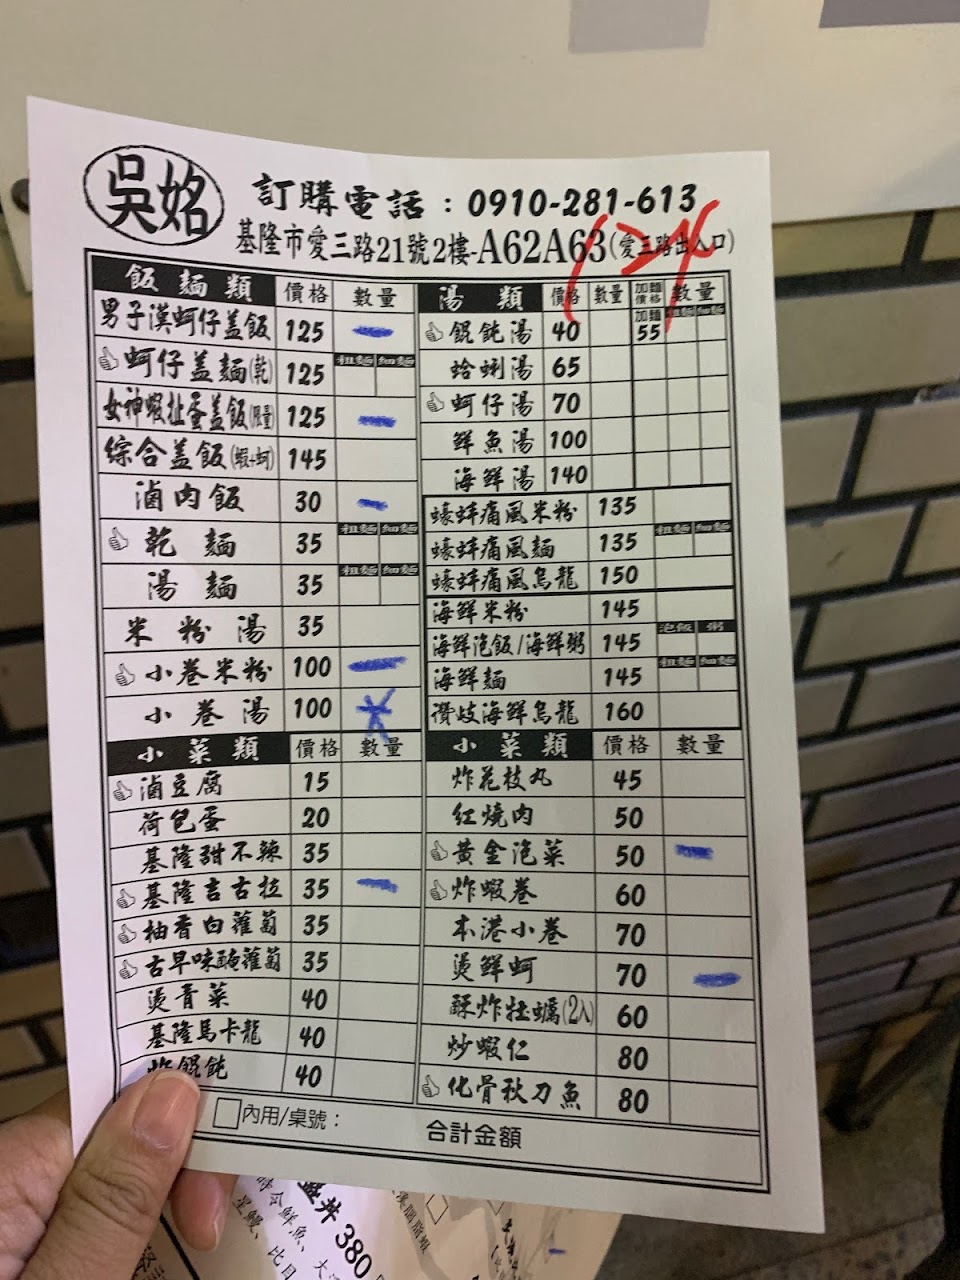 吳姳
訂購電話：0910-281-613
基隆市愛三路21號2樓-A62A63(愛三路出入口)
飯麵類 價格 數量
男子漢蚵仔盖飯 125
蚵仔盖麵(乾) 125 粗麵 細麵
女神蝦扯蛋盖飯(限量) 125
綜合盖飯(蝦+蚵) 145
滷肉飯 30
乾麵 35 粗麵 細麵
湯麵 35 粗麵 細麵
米粉湯 35
小卷米粉 100
小卷湯 100
小菜類 價格 數量
滷豆腐 15
荷包蛋 20
基隆甜不辣 35
基隆吉古拉 35
柚香白蘿蔔 35
古早味醃蘿蔔 35
燙青菜 40
基隆馬卡龍 40
炸餛飩 40
湯類 價格 數量 加麵價格 數量
餛飩湯 40 加麵55 粗麵 細麵
蛤蜊湯 65
蚵仔湯 70
鮮魚湯 100
海鮮湯 140
蠔蚌痛風米粉 135
蠔蚌痛風麵 135 粗麵 細麵
蠔蚌痛風烏龍 150
海鮮米粉 145
海鮮泡飯/海鮮粥 145 泡飯 粥
海鮮麵 145 粗麵 細麵
讚岐海鮮烏龍 160
小菜類 價格 數量
炸花枝丸 45
紅燒肉 50
黃金泡菜 50
炸蝦卷 60
本港小卷 70
燙鮮蚵 70
酥炸牡蠣(2入) 60
炒蝦仁 80
化骨秋刀魚 80
內用/桌號：
合計金額
丼 380
時令鮮魚、大
星鰻、比目